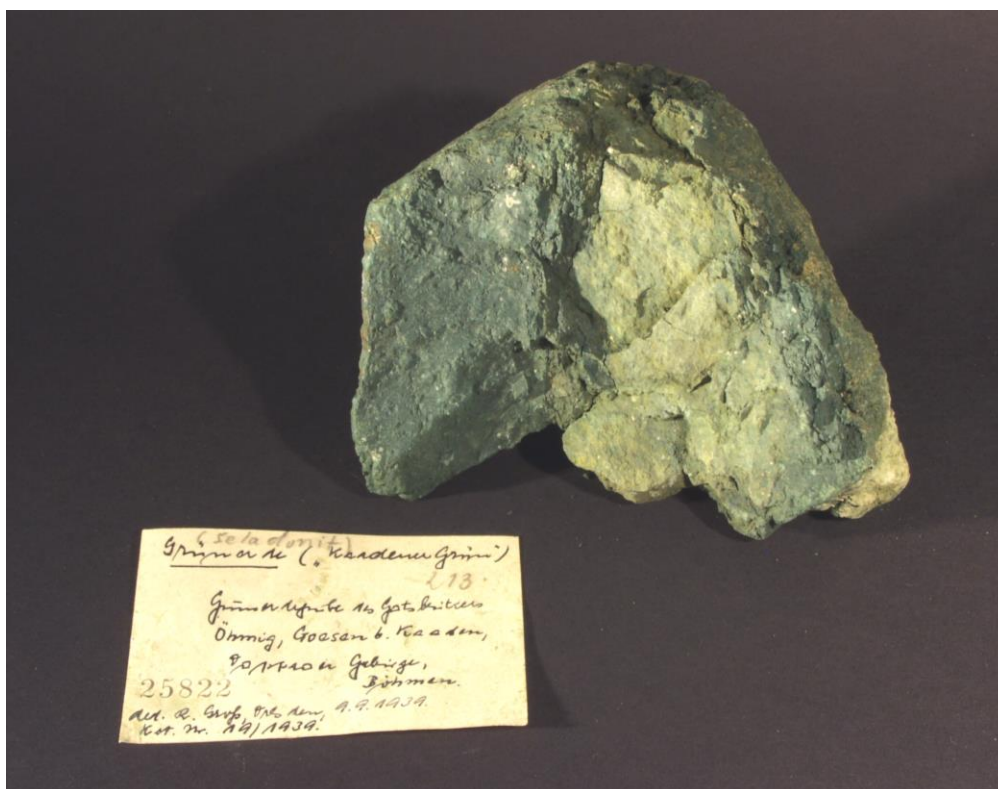 (seladonit)
Grünerde („Kaadener Grün“)
213.
Grünerdegrube des Gutsbesitzers
Öhmig, Goesen b. Kaaden,
Gebirge,
Böhmen.
25822
ded. R. Groß, Dresden, 9.9.1939.
Kat. Nr. 19/1939.